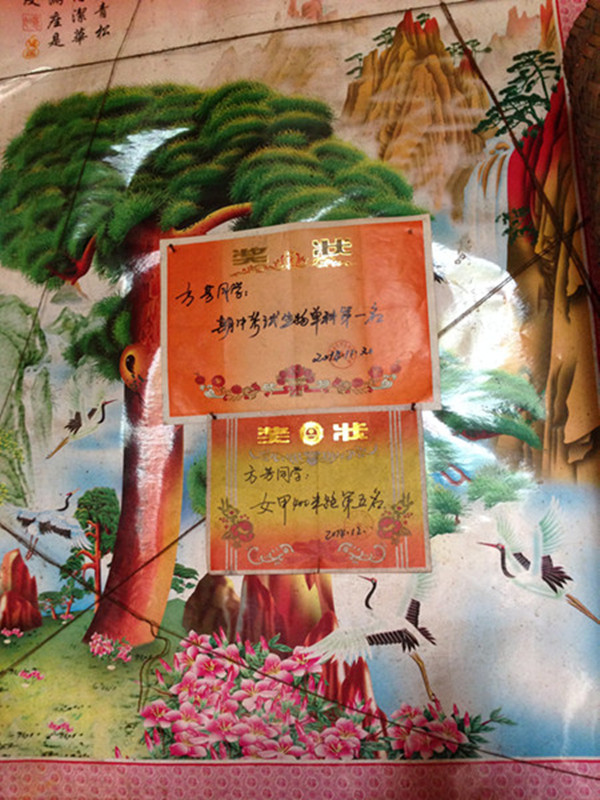 青松
潔華
座是
奖状
方芳同学：
期中考试生物单科第一名
2014.11.21
奖状
方芳同学：
女甲 米跑第五名
2014.12.